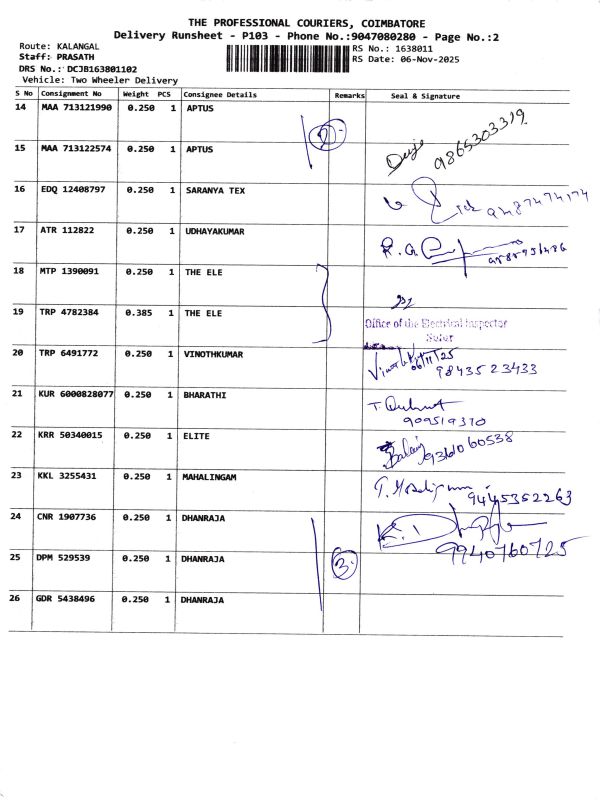 THE PROFESSIONAL COURIERS, COIMBATORE
Delivery Runsheet - P103 - Phone No.:9047080280 - Page No.:2
Route: KALANGAL
Staff: PRASATH
DRS No.: DCJB163801102
Vehicle: Two Wheeler Delivery
RS No.: 1638011
RS Date: 06-Nov-2025
S No Consignment No Weight PCS Consignee Details Remarks Seal & Signature
14 MAA 713121990 0.250 1 APTUS
2
15 MAA 713122574 0.250 1 APTUS
9865303319
16 EDQ 12408797 0.250 1 SARANYA TEX
9487474174
17 ATR 112822 0.250 1 UDHAYAKUMAR
R.G.
18 MTP 1390091 0.250 1 THE ELE
19 TRP 4782384 0.385 1 THE ELE
Office of the Electrical Inspector
Sulur
20 TRP 6491772 0.250 1 VINOTHKUMAR
06/11/25
9843523433
21 KUR 6000828077 0.250 1 BHARATHI
909519310
22 KRR 50340015 0.250 1 ELITE
9360060538
23 KKL 3255431 0.250 1 MAHALINGAM
9445352263
24 CNR 1907736 0.250 1 DHANRAJA
9940760725
25 DPM 529539 0.250 1 DHANRAJA
3
26 GDR 5438496 0.250 1 DHANRAJA